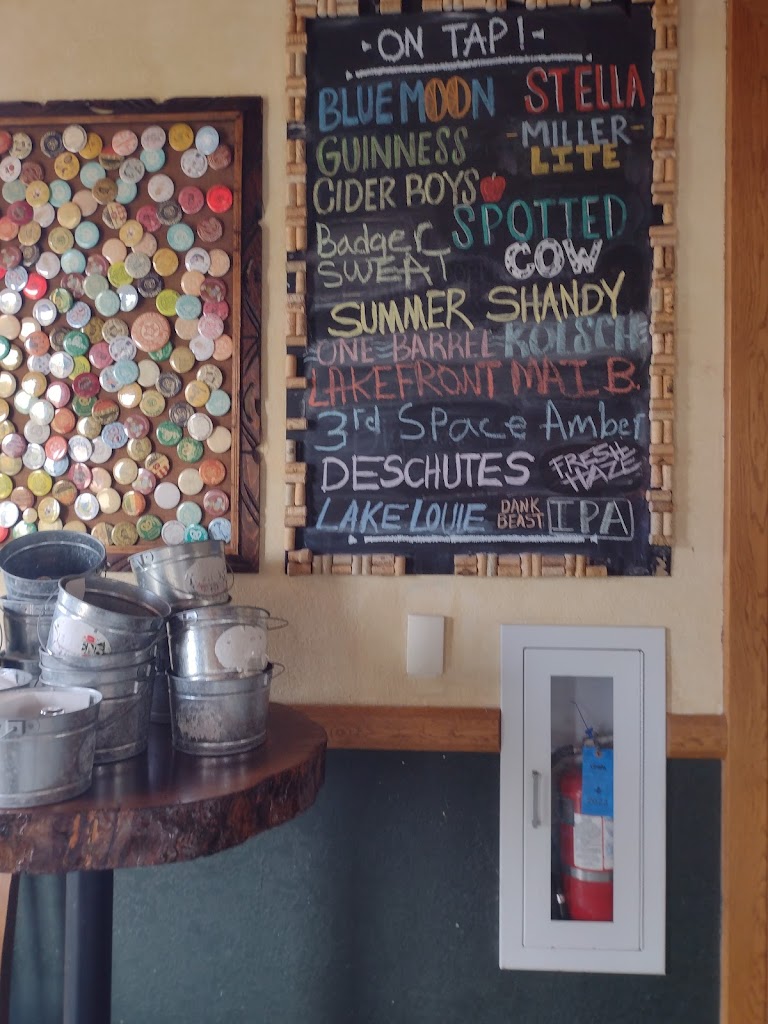 ON TAP!
BLUE MOON
STELLA
GUINNESS
-MILLER-
LITE
CIDER BOYS
SPOTTED
COW
Badger
SWEAT
SUMMER SHANDY
ONE BARREL KOLSCH
LAKEFRONT MAI B.
3rd Space Amber
DESCHUTES
FRESH
HAZE
LAKE LOUIE
DANK
BEAST
IPA